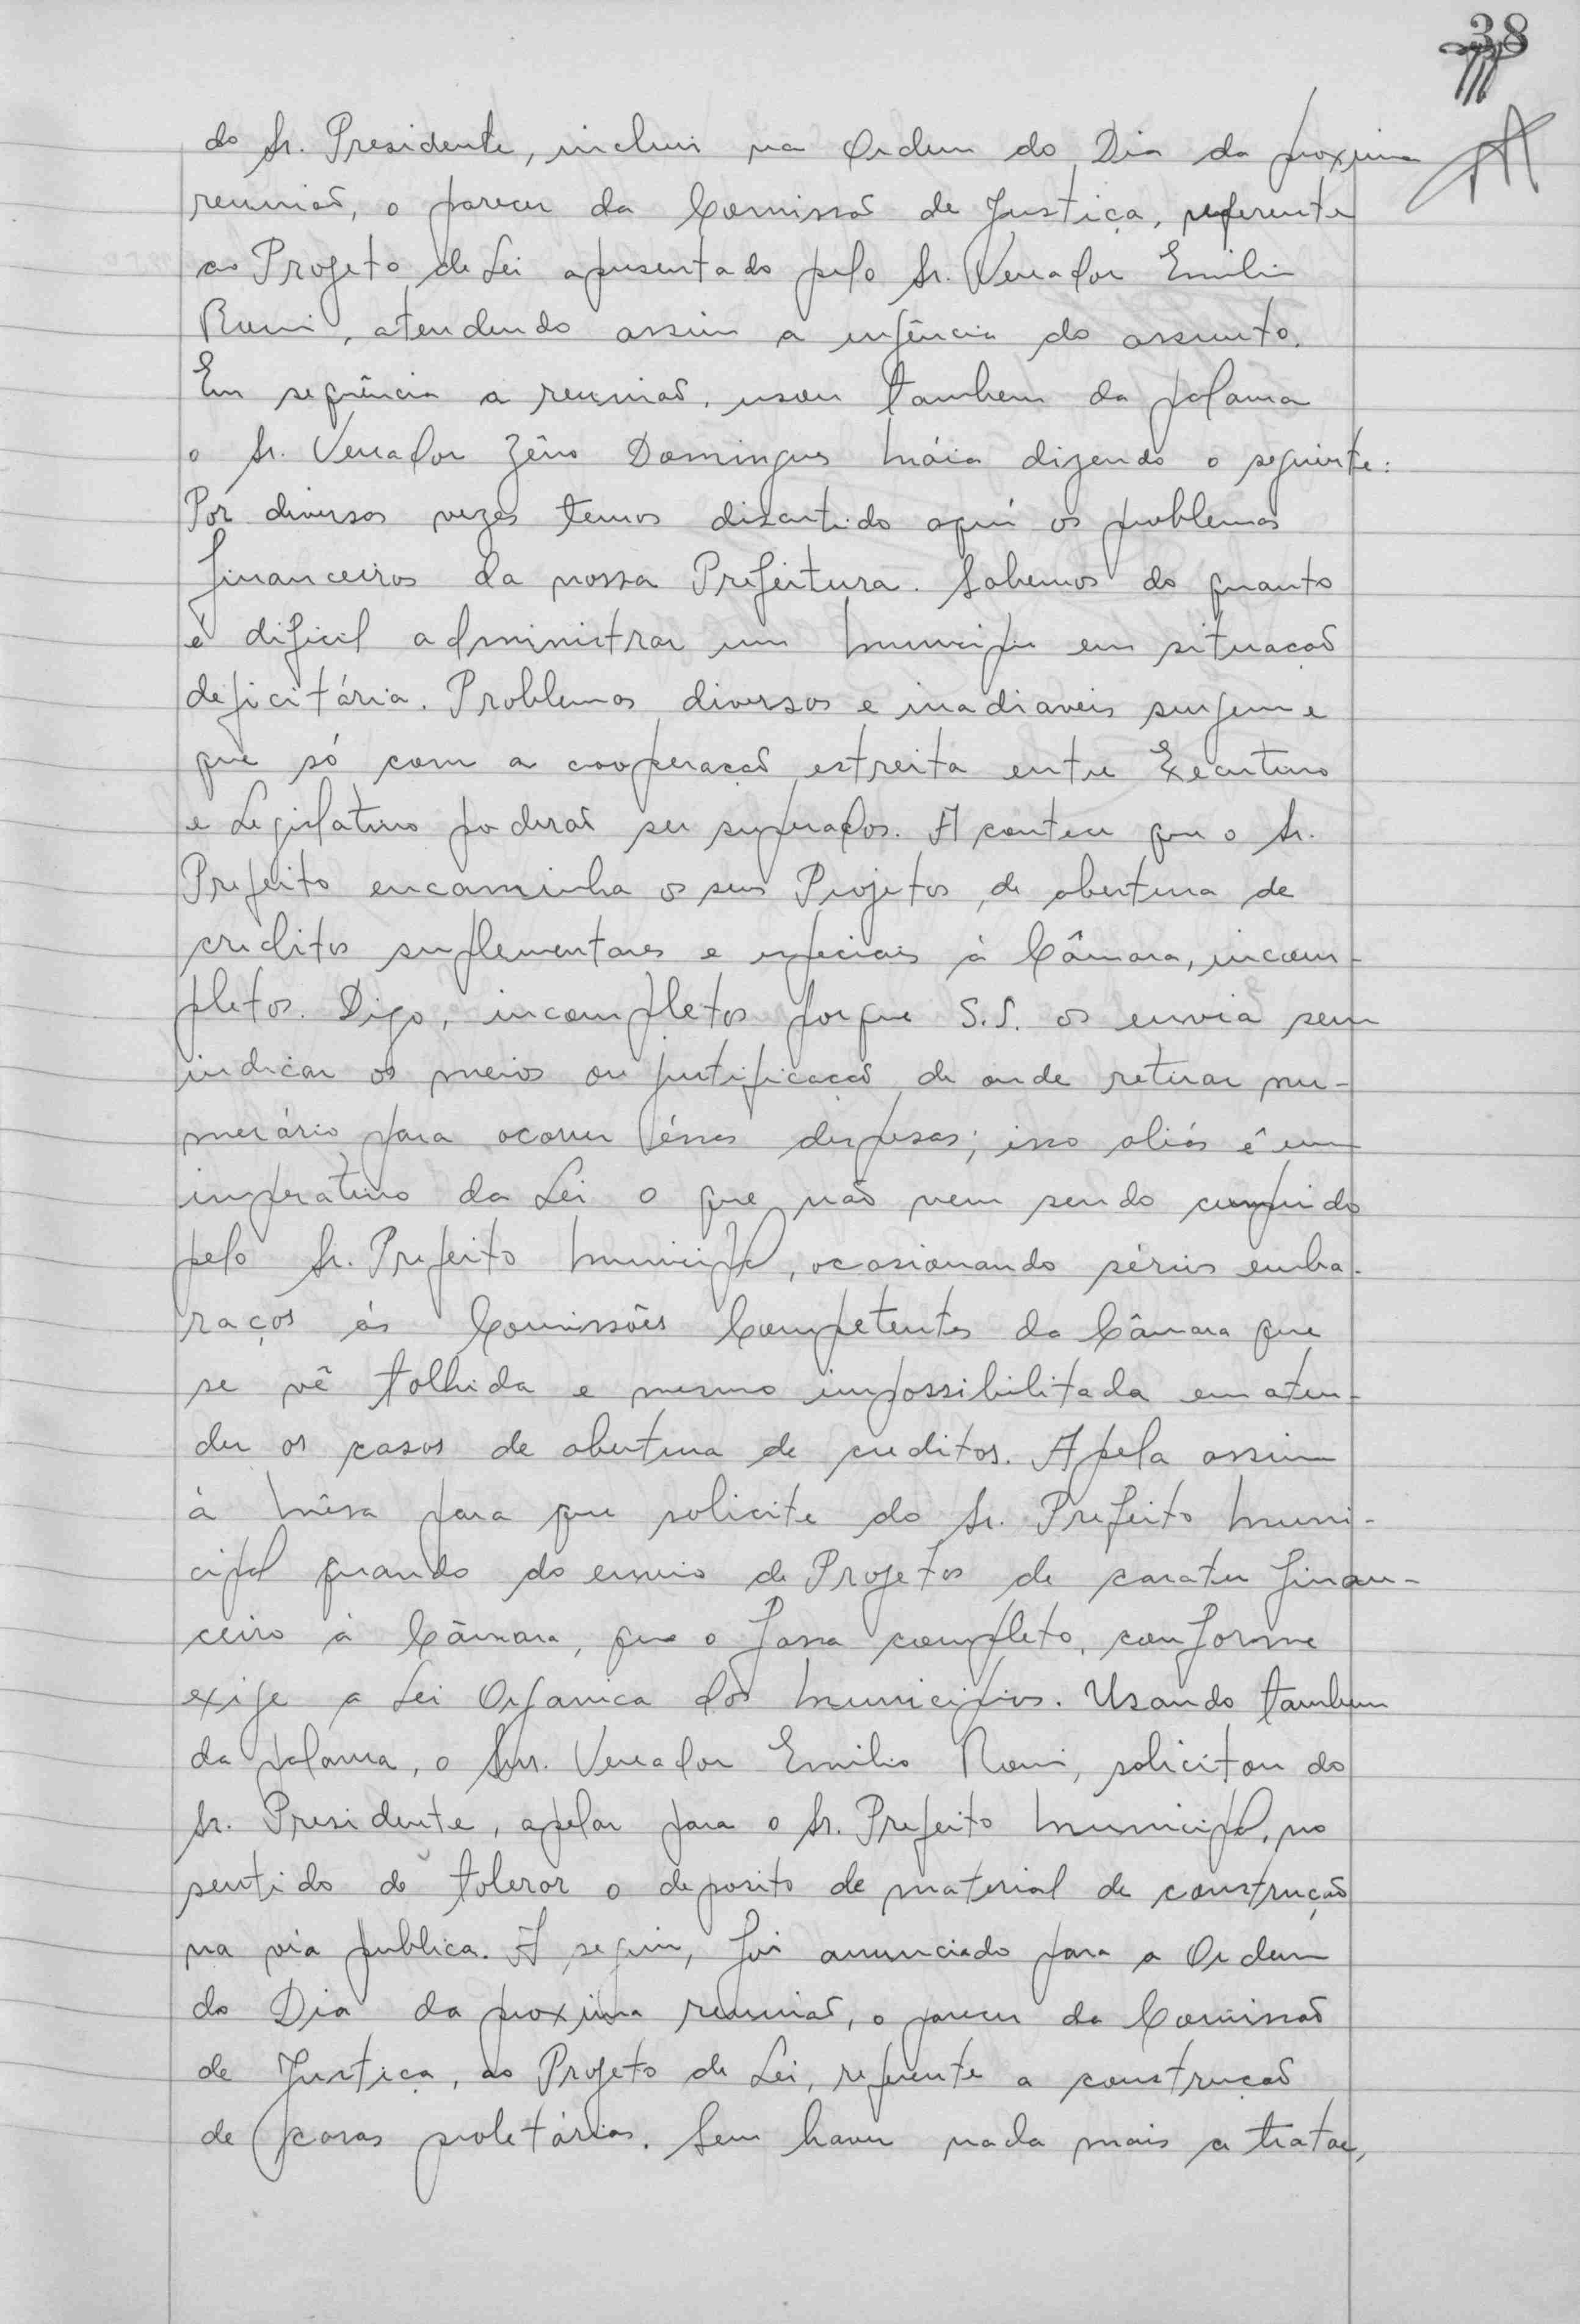 38
do Sr. Presidente, incluir na Ordem do Dia da proxima
reunião, o parecer da Comissão de Justiça, referente
ao Projeto de Lei apresentado pelo Sr. Vereador Emilio
Romi, atendendo assim a urgência do assunto.
Em sequência a reunião, usou tambem da palavra
o Sr. Vereador Zêno Domingues Máia dizendo o seguinte:
Por diversas vezes temos discutido aquí os problemas
financeiros da nossa Prefeitura. Sabemos do quanto
é dificil administrar um Municipio em situação
deficitária. Problemas diversos e inadiaveis surgem e
que só com a cooperação estreita entre Executivo
e Legislativo poderão ser superados. Acontece que o Sr.
Prefeito encaminha os seus Projetos, de abertura de
creditos suplementares e especiais à Câmara, incom-
pletos. Digo, incompletos porque S.S. os envia sem
indicar os meios ou justificação de onde retirar nu-
merário para ocorrer éssas despesas; isso aliás é um
imperativo da Lei o que não vem sendo cumprido
pelo Sr. Prefeito Municipal, ocasionando sérios emba-
raços ás Comissões Competentes da Câmara que
se vê tolhida e mesmo impossibilitada em aten-
der os casos de abertura de creditos. Apela assim
à Mêsa para que solicite do Sr. Prefeito Muni-
cipal quando do envio de Projetos de carater finan-
ceiro à Câmara, que o faça completo, conforme
exige a Lei Organica dos Municipios. Usando tambem
da palavra, o Snr. Vereador Emilio Romi, solicitou do
Sr. Presidente, apelar para o Sr. Prefeito Municipal, no
sentido de tolerar o deposito de material de construção
na via publica. A seguir, foi anunciado para a Ordem
do Dia da proxima reunião, o parecer da Comissão
de Justiça, ao Projeto de Lei, referente a construção
de casas proletárias. Sem haver nada mais a tratar,